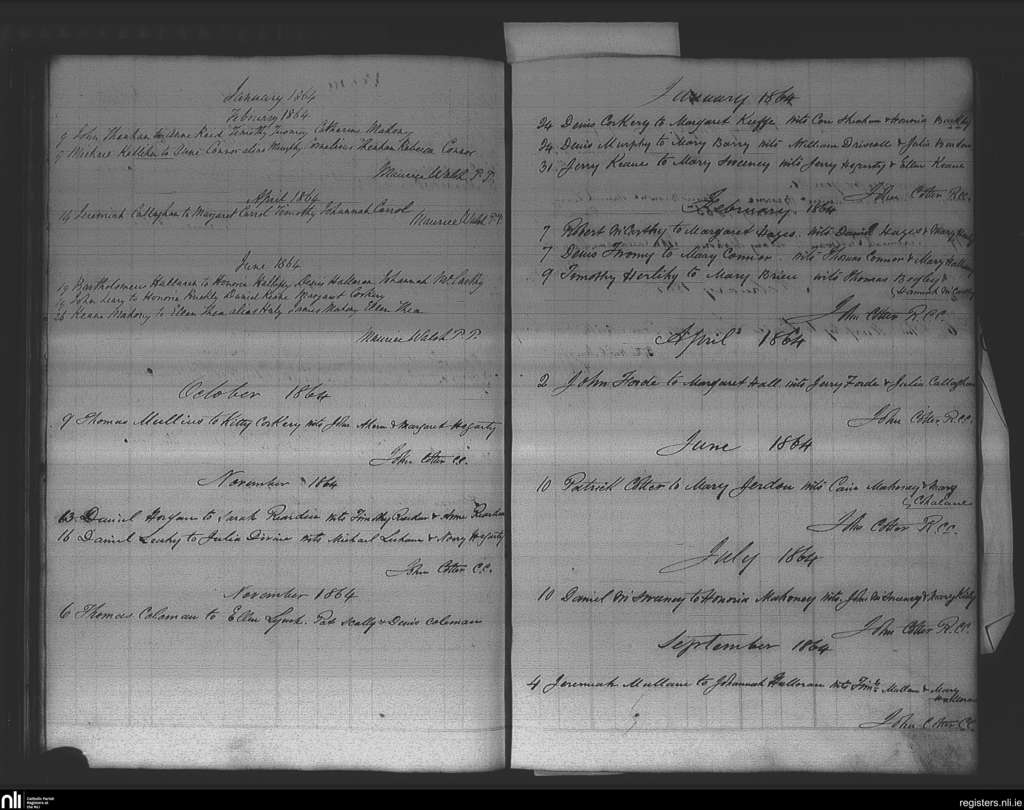 January 1864
February 1864
9 John Shenhan to Anne Reed Timothy Twomey Catherine Mahony
9 Michael Kelleher to Jane Connor alias Murphy Cornelius Shenhan Rebecca Connor
Maurice Walsh P. P.
April 1864
14 Jeremiah Callaghan to Margaret Carrol Timothy Johannah Carrol
Maurice Walsh P.P.
June 1864
19 Bartholomew Halloran to Honora Denis Halloran Johannah McCarthy
John Leary to Honoria Buckly Daniel Keane Margaret Corkery
26 Keane Mahony to Ellen Shea alias Daniel Mahony Ellen Shea
Maurice Walsh P. P.
October 1864
9 Thomas Mullins to Kitty Corkery wits John Ahern & Margaret Hegarty
John Cotter C.C.
November 1864
13 Daniel Horgan to Sarah Reardin wits Timothy Reardin & Anne Reardin
16 Daniel Leahy to Julia Divine wits Michael Lishane & Nory Hegarty
John Cotter C.C.
November 1864
6 Thomas Coleman to Ellen Lynch. Pat Scally & Denis Coleman
January 1864
24 Denis Corkery to Margaret Keeffe wits Con Shenhan & Honoria
24 Denis Murphy to Mary Barry wits William Driscoll & Julia
31 Jerry Keane to Mary Sweeney wits Jerry Hegarty & Ellen Keane
John Cotter R.C.C.
February 1864
7 Robert McCarthy to Margaret Hayes wits Daniel Hayes & Mary
7 Denis Twomy to Mary Connor wits Thomas Connor & Mary
9 Timothy Herlihy to Mary Brien wits Thomas Begley &
Hannah McCarthy
John Cotter R.C.C.
April 1864
2 John Forde to Margaret Hall wits Jerry Forde & Julia Callaghan
John Cotter R.C.C.
June 1864
10 Patrick Cotter to Mary Jerdon wits Cain Mahoney & Mary
Chalane
John Cotter R.C.C.
July 1864
10 Daniel McSweeney to Honoria Mahoney wits John McSweeney & Mary
John Cotter R.C.C.
September 1864
4 Jeremiah Mullane to Johannah Halloran wits Timy Mullane & Mary
Halloran
John Cotter CC.
nli
Catholic Parish
Registers at
the NLI
registers.nli.ie